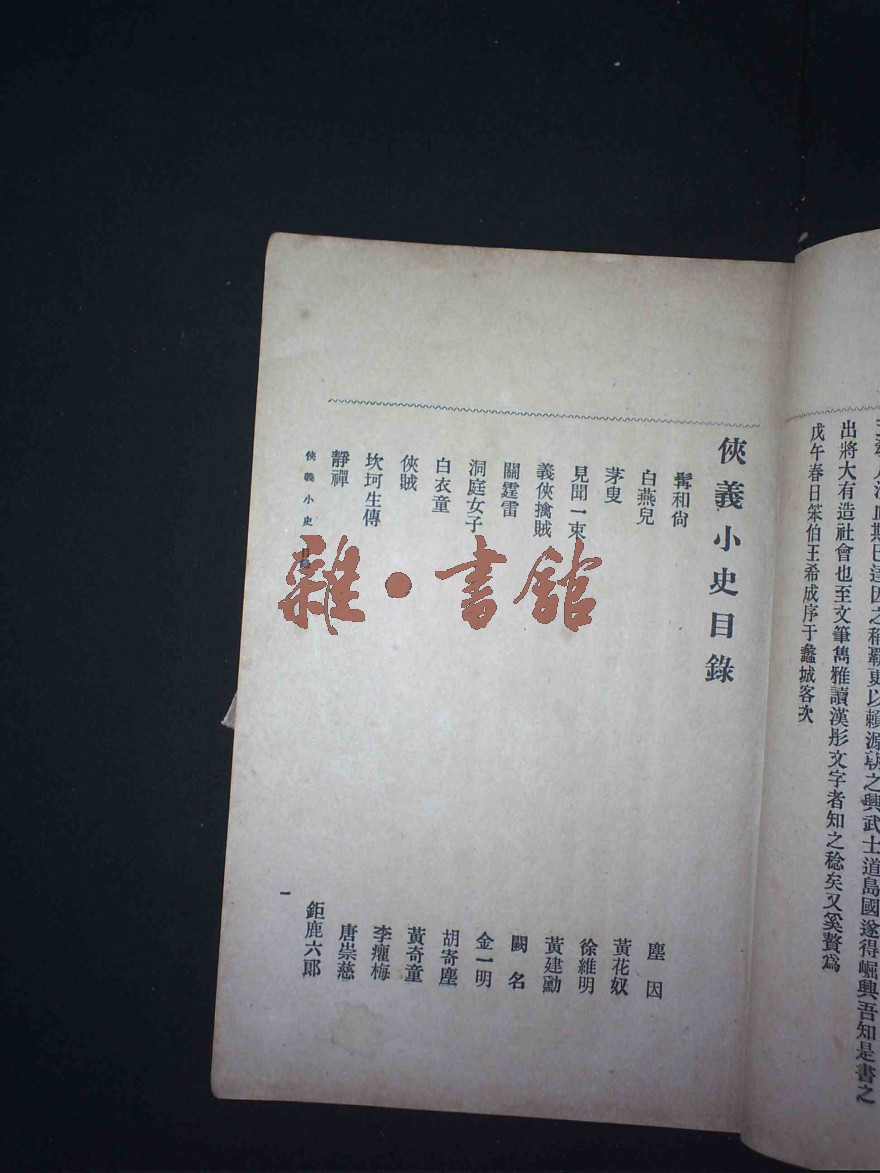 斯巴達因之稱覇更以賴源朝之興武士道島國遂得崛興吾知是書之
出將大有造社會也至文筆雋雅讀漢彤文字者知之稔矣又奚贅爲
戊午春日笨伯王希成序于蠡城客次
俠義小史目錄
髯和尙 塵因
白燕兒 黃花奴
茅叟 徐維明
見聞一束 黃建勳
義俠擒賊 闕名
關霆雷 金一明
洞庭女子 胡寄塵
白衣童 黃奇童
俠賊 李癯梅
坎坷生傳 唐崇慈
靜禪 鉅鹿六郎
俠義小史 目錄
一
雜·書館